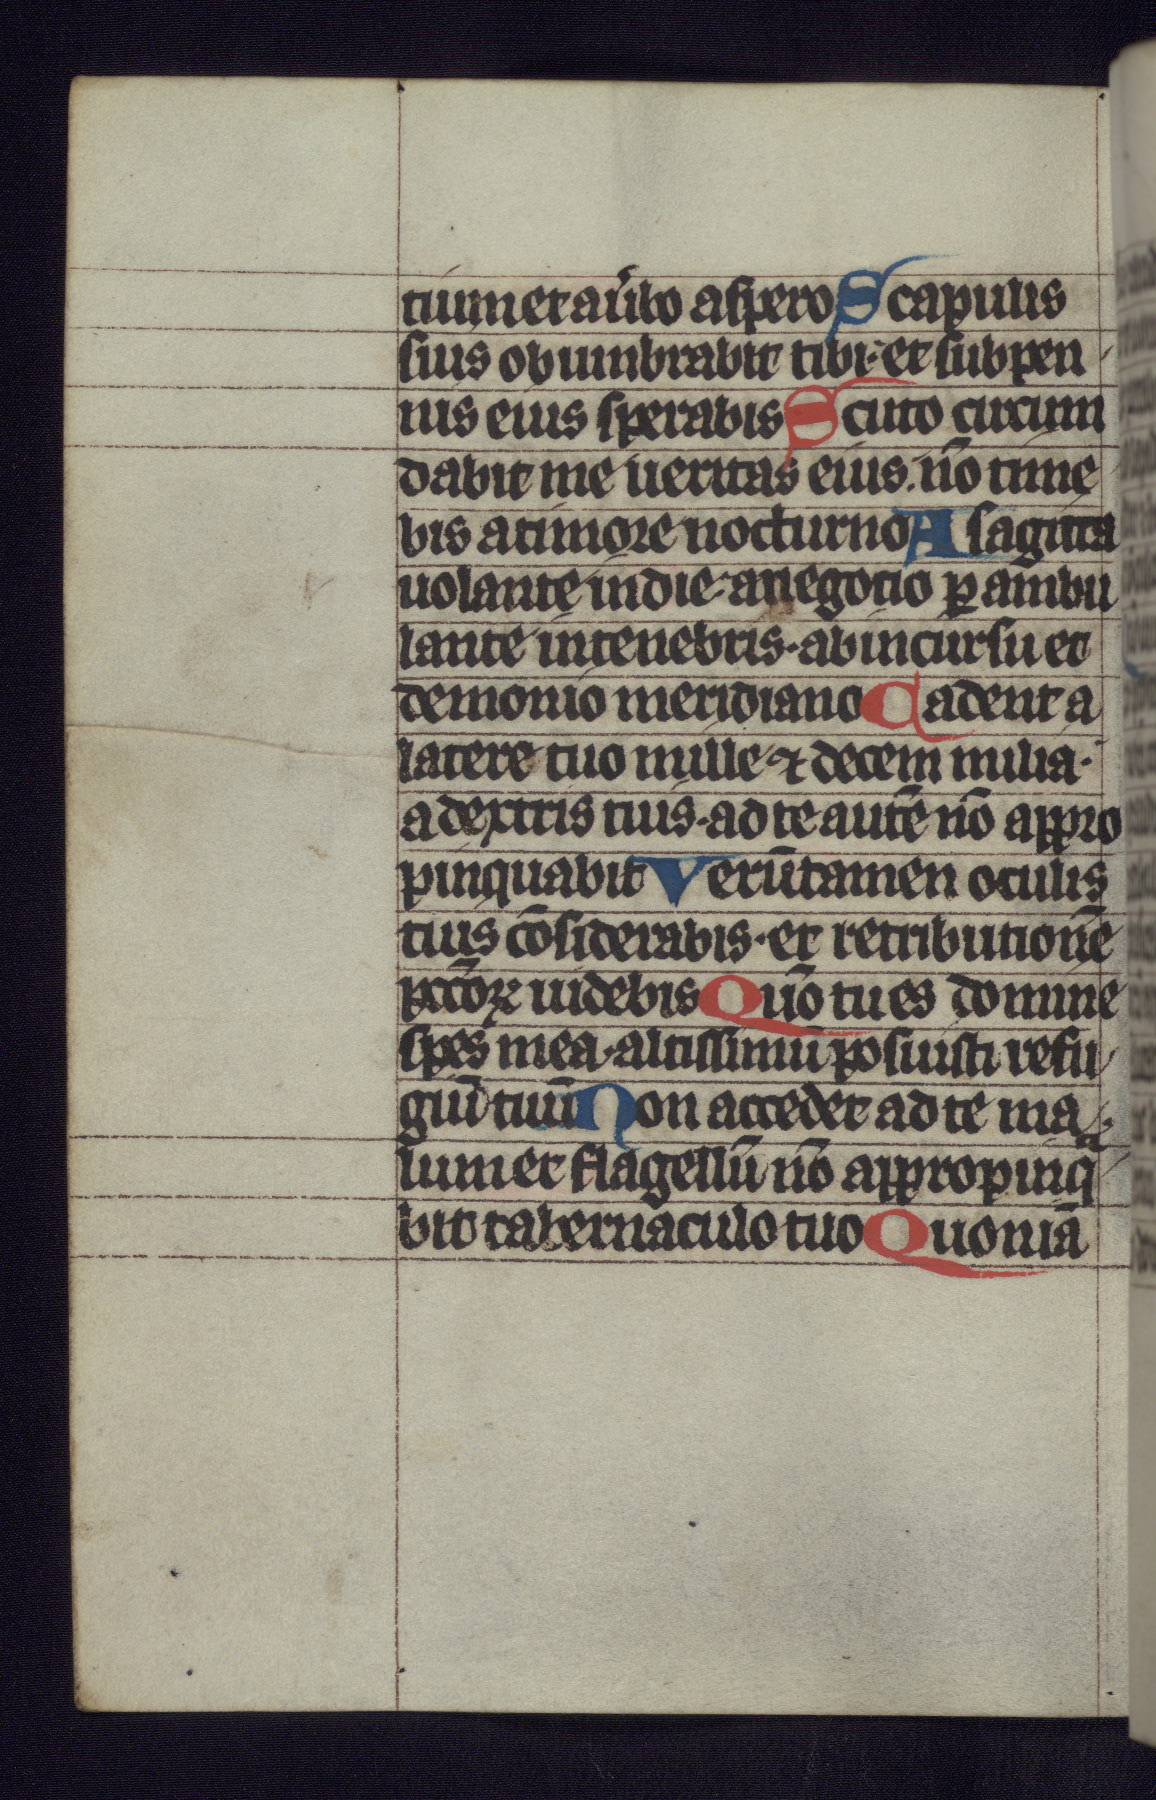 tium et a u̓bo aspero Scapulis
suis obumbrabit tibi· et sub pen
nis eius sperabis Scuto circum
dabit me ueritas eius. nō time
bis a timore nocturno A sagitta
uolante in die· a negocio ꝑambu
lante in tenebris· ab incursu et
demonio meridiano Cadent a
latere tuo mille ⁊ decem milia·
a dextris tuis· ad te autē nō appro
pinquabit Verūtamen oculis
tuis cōsiderabis· et retributionē
pcc̄oꝝ uidebis Qūo tu es domine
spes mea· altissimū posuisti refu
giū tuū Non accedet ad te ma
lum et flagellū nō appropinqᷓ
bit tabernaculo tuo Quoniā